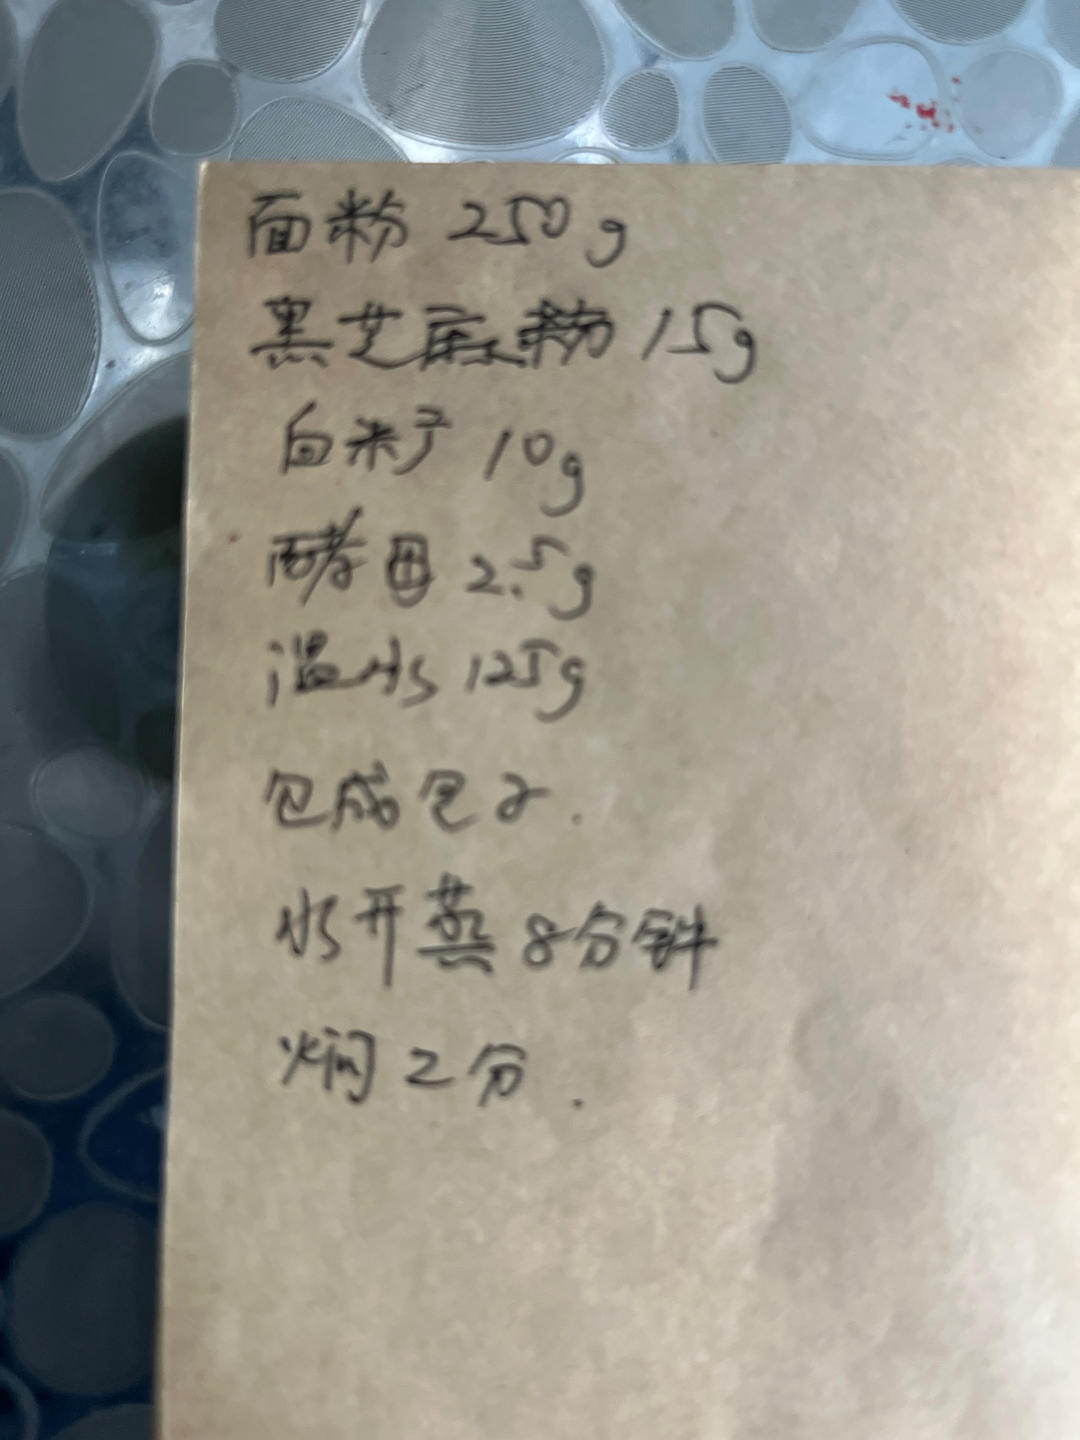 面粉 250g
黑芝麻粉 15g
白米子 10g
酵母 2.5g
温水 125g
包成包子.
水开蒸8分钟
焖2分.